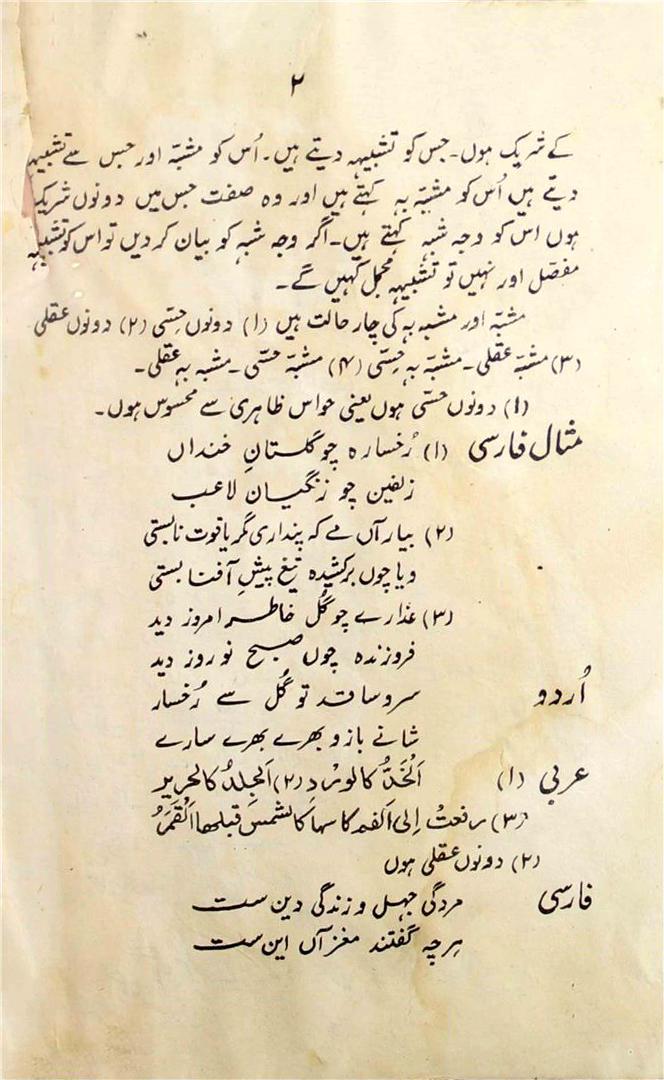 ۲
کے شریک ہوں۔ جس کو تشبیہہ دیتے ہیں۔ اُس کو مشبّہ اور جس سے تشبیہہ
دیتے ہیں اُس کو مشبّہ بہ کہتے ہیں اور وہ صفت جس میں دونوں شریک
ہوں اس کو وجہ شبہ کہتے ہیں۔ اگر وجہ شبہ کو بیان کردیں تو اس کو تشبیہہ
مفصّل اور نہیں تو تشبیہہ مجمل کہیں گے۔
مشبّہ اور مشبہ بہ کی چار حالت ہیں (۱) دونوں حِسّی (۲) دونوں عقلی
(۳) مشبّہ عقلی۔ مشبّہ بہ حِسّی (۴) مشبّہ حسّی۔ مشبہ بہ عقلی۔
(۱) دونوں حسّی ہوں یعنی حواس ظاہری سے محسوس ہوں۔
مثال فارسی (۱) رُخسارہ چو گلستانِ خنداں
زلفین چو زنگیان لاعب
(۲) بیار آں مے کہ پنداری مگر یاقوت نابستی
ویا چوں برکشیدہ تیغ پیشِ آفتابستی
(۳) عذارے چو گُل خاطر امروز دید
فروزندہ چوں صبح نوروز دید
اُردو سرو سا قد تو گُل سے رُخسار
شانے بازو بھرے بھرے سارے
عربی (۱) اَلْخَدُّ کالورْدِ (۲) اَلجِلدُ کالحریر
(۳) رفعتُ اِلیٰ کالشمس قبلھا اَلْقَمَرُ
(۲) دونوں عقلی ہوں
فارسی مردگی جہل و زندگی دین ست
ہرچہ گفتند مغز آں این ست